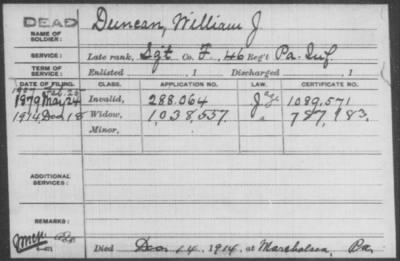 DEAD
Duncan, William J
NAME OF SOLDIER:
SERVICE: Late rank, Sgt Co. F, 46 Reg't Pa. Inf.
TERM OF SERVICE: Enlisted , 1 Discharged , 1
DATE OF FILING. CLASS. APPLICATION NO. LAW. CERTIFICATE NO.
Feb. 25
1879 May 24 Invalid, 288.064 1089,571
1914 Dec 18 Widow, 1,038,557 787,183
Minor,
ADDITIONAL SERVICES:
REMARKS:
Died Dec. 14, 1914, at Pa